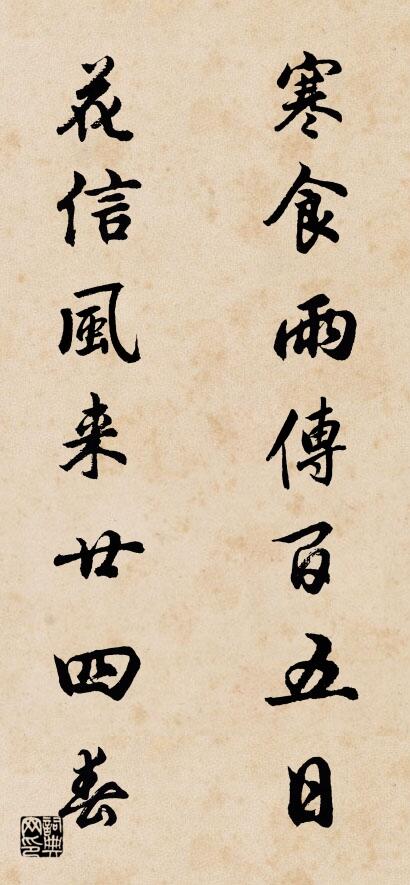 寒食雨傳百五日
花信風来廿四春
詞典网印